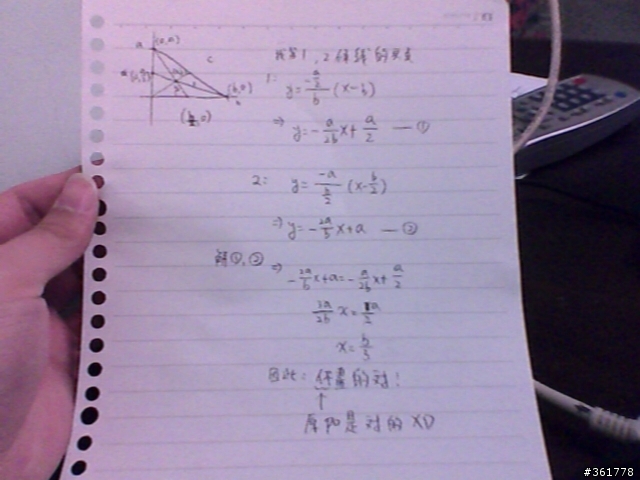 a (0,a)
c
(b,0)
b
(b/2,0)
1:
y = (-a/2)/b (x-b)
⇒ y = -a/2b x + a/2 —①
2: y = -a/(b/2) (x-b/2)
⇒ y = -2a/b x + a —②
解①,② ⇒
-2a/b x + a = -a/2b x + a/2
3a/2b x = a/2
x = b/3
因此: 你畫的对!
↑
是対的 XD
#361778